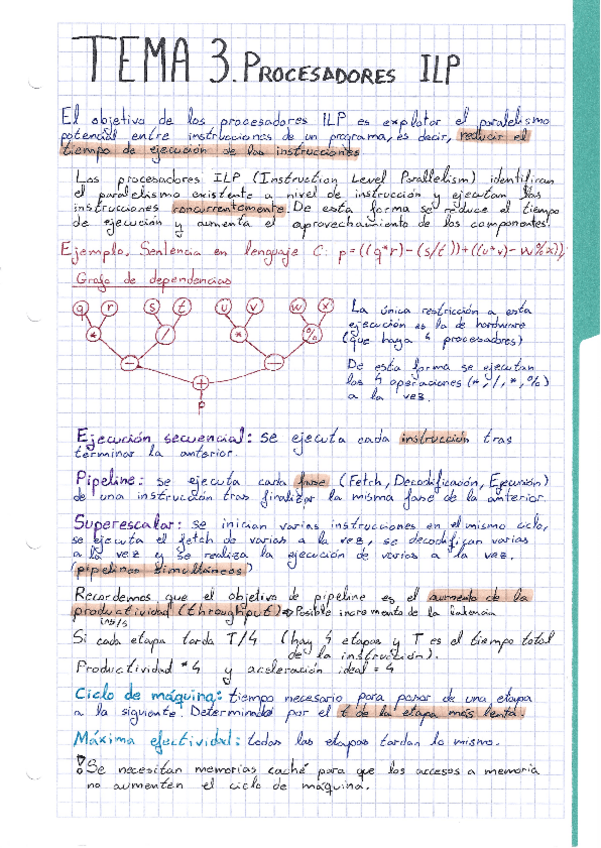 TEMA 3. PROCESADORES ILP
El objetivo de los procesadores ILP es explotar el paralelismo
potencial entre instrucciones de un programa, es decir, reducir el
tiempo de ejecución de las instrucciones
Los procesadores ILP (Instruction Level Parallelism) identifican
el paralelismo existente a nivel de instrucción y ejecutan las
instrucciones concurrentemente. De esta forma se reduce el tiempo
de ejecución y aumenta el aprovechamiento de los componentes.
Ejemplo. Sentencia en lenguaje C: p=((q*r)-(s/t))+((u*v)-w%x));
Grafo de dependencias
q r s t u v w x
* / * %
- -
+
p
La única restricción a esta
ejecución es la de hardware
(que haya 4 procesadores)
De esta forma se ejecutan
las 4 operaciones (*,/,*,%)
a la vez.
Ejecución secuencial: se ejecuta cada instrucción tras
terminar la anterior.
Pipeline: se ejecuta cada fase (Fetch, Decodificación, Ejecución)
de una instrucción tras finalizar la misma fase de la anterior.
Superescalar: se inician varias instrucciones en el mismo ciclo,
se ejecuta el fetch de varias a la vez, se decodifican varias
a la vez y se realiza la ejecución de varias a la vez.
(pipelines simultáneos)
Recordemos que el objetivo de pipeline es el aumento de la
productividad (throughput) ⇒ Posible incremento de la latencia
inst/s
Si cada etapa tarda T/4 (hay 4 etapas y T es el tiempo total
de la instrucción).
Productividad * 4 y aceleración ideal = 4
Ciclo de máquina: tiempo necesario para pasar de una etapa
a la siguiente. Determinado por el t de la etapa más lenta.
Máxima efectividad: todas las etapas tardan lo mismo.
! Se necesitan memorias caché para que los accesos a memoria
no aumenten el ciclo de máquina.